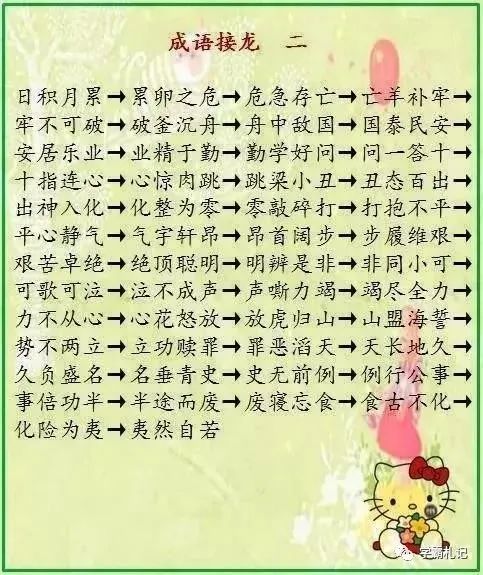 成语接龙 二
日积月累→累卵之危→危急存亡→亡羊补牢→
牢不可破→破釜沉舟→舟中敌国→国泰民安→
安居乐业→业精于勤→勤学好问→问一答十→
十指连心→心惊肉跳→跳梁小丑→丑态百出→
出神入化→化整为零→零敲碎打→打抱不平→
平心静气→气宇轩昂→昂首阔步→步履维艰→
艰苦卓绝→绝顶聪明→明辨是非→非同小可→
可歌可泣→泣不成声→声嘶力竭→竭尽全力→
力不从心→心花怒放→放虎归山→山盟海誓→
势不两立→立功赎罪→罪恶滔天→天长地久→
久负盛名→名垂青史→史无前例→例行公事→
事倍功半→半途而废→废寝忘食→食古不化→
化险为夷→夷然自若
学霸札记